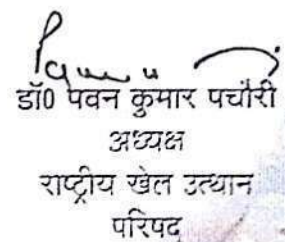 डॉ0 पवन कुमार पचौरी
अध्यक्ष
राष्ट्रीय खेल उत्थान
परिषद